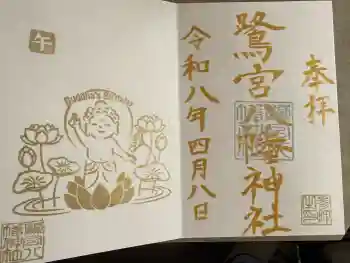 奉拝
鷺宮八幡神社
令和八年四月八日
午
Buddha's Birthday